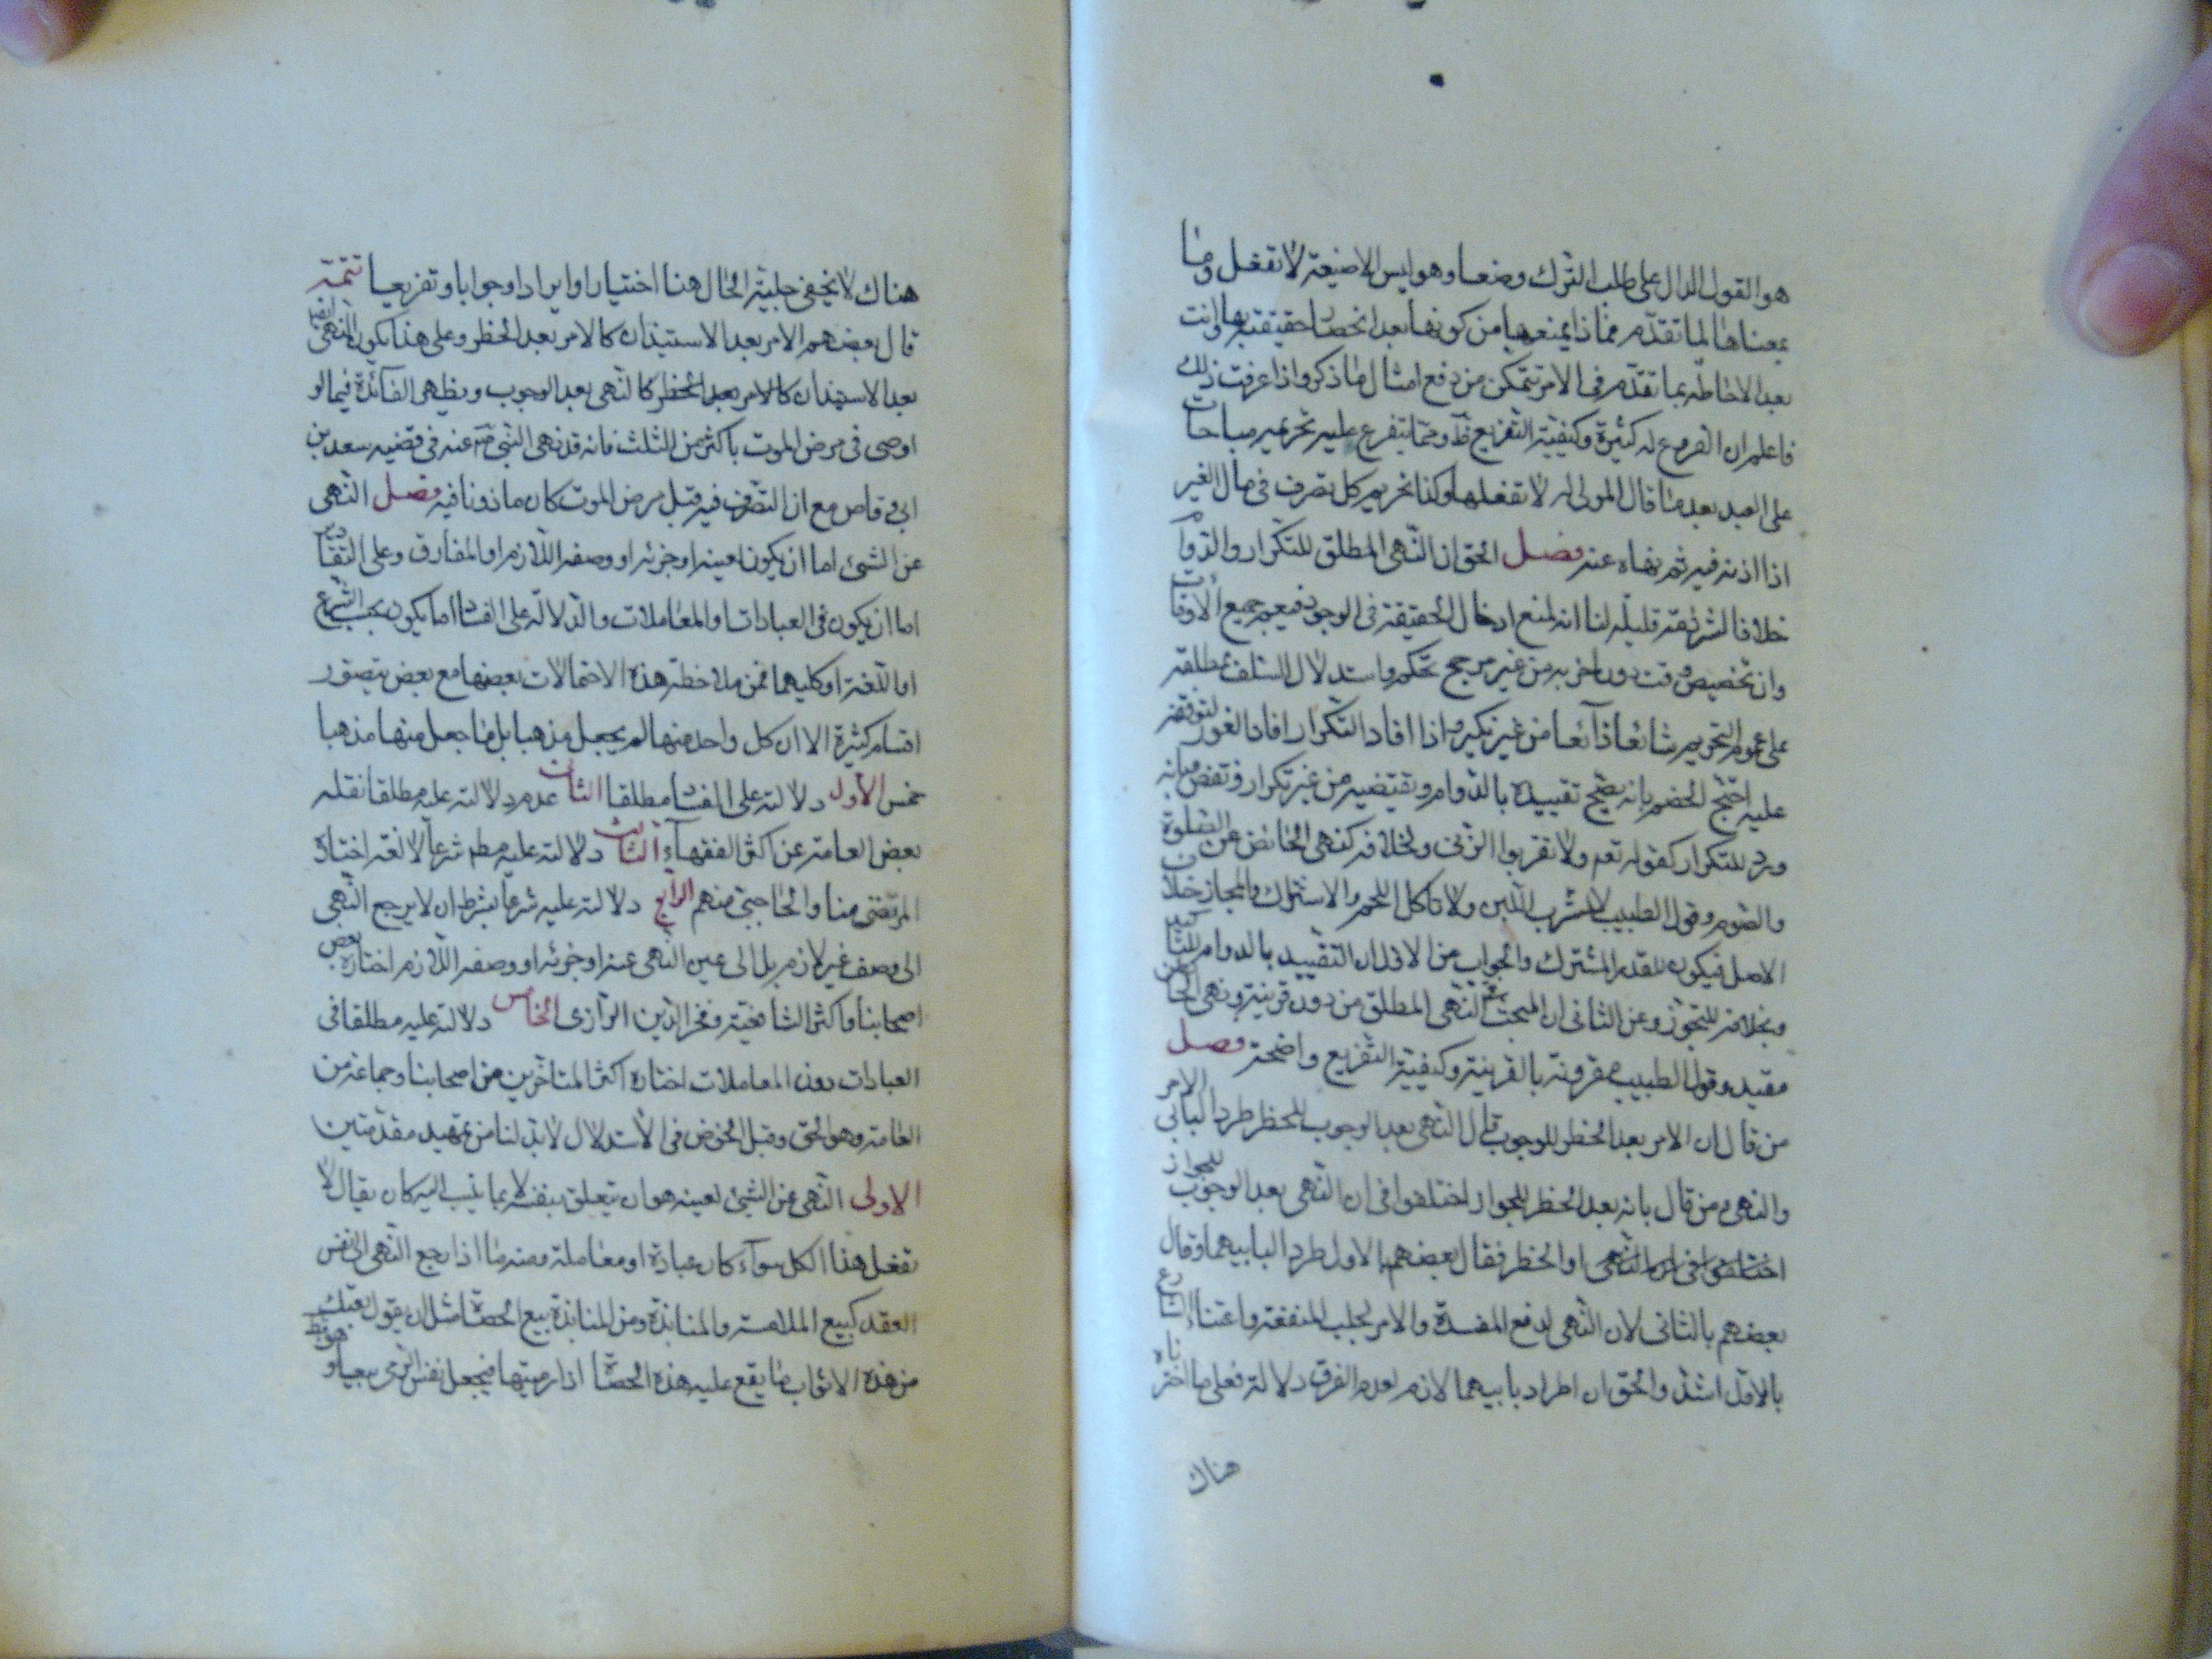 هو القول الدال على طلب الترك وضعا وهو ليس الا صيغة لا تفعل وما
بمعناها لما تقدم مما ذا يمنعها من كونها بعد انحصار حقيقته بها وانت
بعد الاحاطة بما تقدم فى الامر تتمكن من دفع امثال ما ذكر واذا عرفت ذلك
فاعلم ان الفروع له كثيرة وكيفية التفريع ظ ومما يتفرع عليه تحريم مباحات
على العبد بعد ما قال المولى له لا تفعلها وكذا تحريم كل تصرف فى مال الغير
اذا اذنه فيه ثم نهاه عنه فصل الحق ان النهى المطلق للتكرار والدوام
خلافا لشرذمة قليلة لنا انه لمنع ادخال الحقيقة فى الوجود فيعم جميع الاوقات
وان تخصيص وقت دون اخر به من غير مرجح تحكم واستدلال السلف بمطلقه
على عموم التحريم شائعا ذائعا من غير نكير واذا افاد التكرار افاد الفور لتوقفه
عليه احتج الخصم بانه يصح تقييده بالدوام ونقيضه من غير تكرار ونقض وبانه
ورد للتكرار كقوله تعم ولا تقربوا الزنى ولخلافه كنهى الحائض عن الصلوة
والصوم وقول الطبيب لا تشرب اللبن ولا تاكل اللحم والاشتراك والمجاز خلاف
الاصل فيكون للقدر المشترك والجواب عن الاول ان التقييد بالدوام للتاكيد
وبخلافه للتجوز وعن الثانى ان المبحث النهى المطلق من دون قرينة ونهى الحائض
مقيد وقول الطبيب مقرونة بالقرينة وكيفية التفريع واضحة فصل
من قال ان الامر بعد الحظر للوجوب قال النهى بعد الوجوب للحظر طردا لبابى الامر
والنهى ومن قال بانه بعد الحظر للجواز اختلفوا فى ان النهى بعد الوجوب للجواز
اختلفوا فى ان النهى او الحظر فقال بعضهم بالاول طردا لبابيهما وقال
بعضهم بالثانى لان النهى لدفع المفسدة والامر لجلب المنفعة واعتناء الشارع
بالاول اشد والحق ان اطراد بابيهما لازم لعدم الفرق دلالة فعلى ما اخترناه
هناك
هناك لا يخفى جلية الحال هنا اختيارا وايرادا وجوابا وتفريعا تتمة
قال بعضهم الامر بعد الاستيذان كالامر بعد الحظر وعلى هذا يكون النهى ايضا
بعد الاستيذان كالامر بعد الحظر كالنهى بعد الوجوب ويظهر الفائدة فيما لو
اوصى فى مرض الموت باكثر من الثلث فانه قد نهى النبى ص عنه فى قضيه سعد بن
ابى وقاص مع ان التصرف فيه قبل مرض الموت كان ماذونا فيه فصل النهى
عن الشئ اما ان يكون لعينه او جزئه او وصفه اللازم او المفارق وعلى التقادير
اما ان يكون فى العبادات او المعاملات والدلالة على الفساد اما يكون بحسب الشرع
او اللغة او كليهما فمن ملاحظة هذه الاحتمالات بعضها مع بعض يتصور
اقسام كثيرة الا ان كل واحد منها لم يجعل مذهبا بل ما جعل منها مذهبا
خمس الاول دلالته على الفساد مطلقا الثانى عدم دلالته عليه مطلقا نقله
بعض العامة عن اكثر الفقهاء الثالث دلالته عليه مطم شرعا لا لغة اختاره
المرتضى منا والحاجبى منهم الرابع دلالته عليه شرعا بشرط ان لا يرجع النهى
الى وصف غير لازم بل الى عين النهى عنه او جزئه او وصفه اللازم اختاره بعض
اصحابنا واكثر الشافعية وفخر الدين الرازى الخامس دلالته عليه مطلقا فى
العبادات دون المعاملات اختاره اكثر المتاخرين من اصحابنا وجماعة من
العامة وهو الحق وقبل الخوض فى الاستدلال لا بد لنا من تمهيد مقدمتين
الاولى النهى عن الشئ لعينه هو ان يتعلق بنفسه لا بما ينسب اليه كان يقال لا
تفعل هذا الكل سواء كان عبادة او معاملة ومنه ما اذا رجع النهى الى نفس
العقد كبيع الملامسة والمنابذة ومن المنابذة بيع الحصاة مثل ان يقول بعتك
من هذه الاثواب ما يقع عليه هذه الحصاة اذا رميتها فيجعل نفس الرمى بيعا و